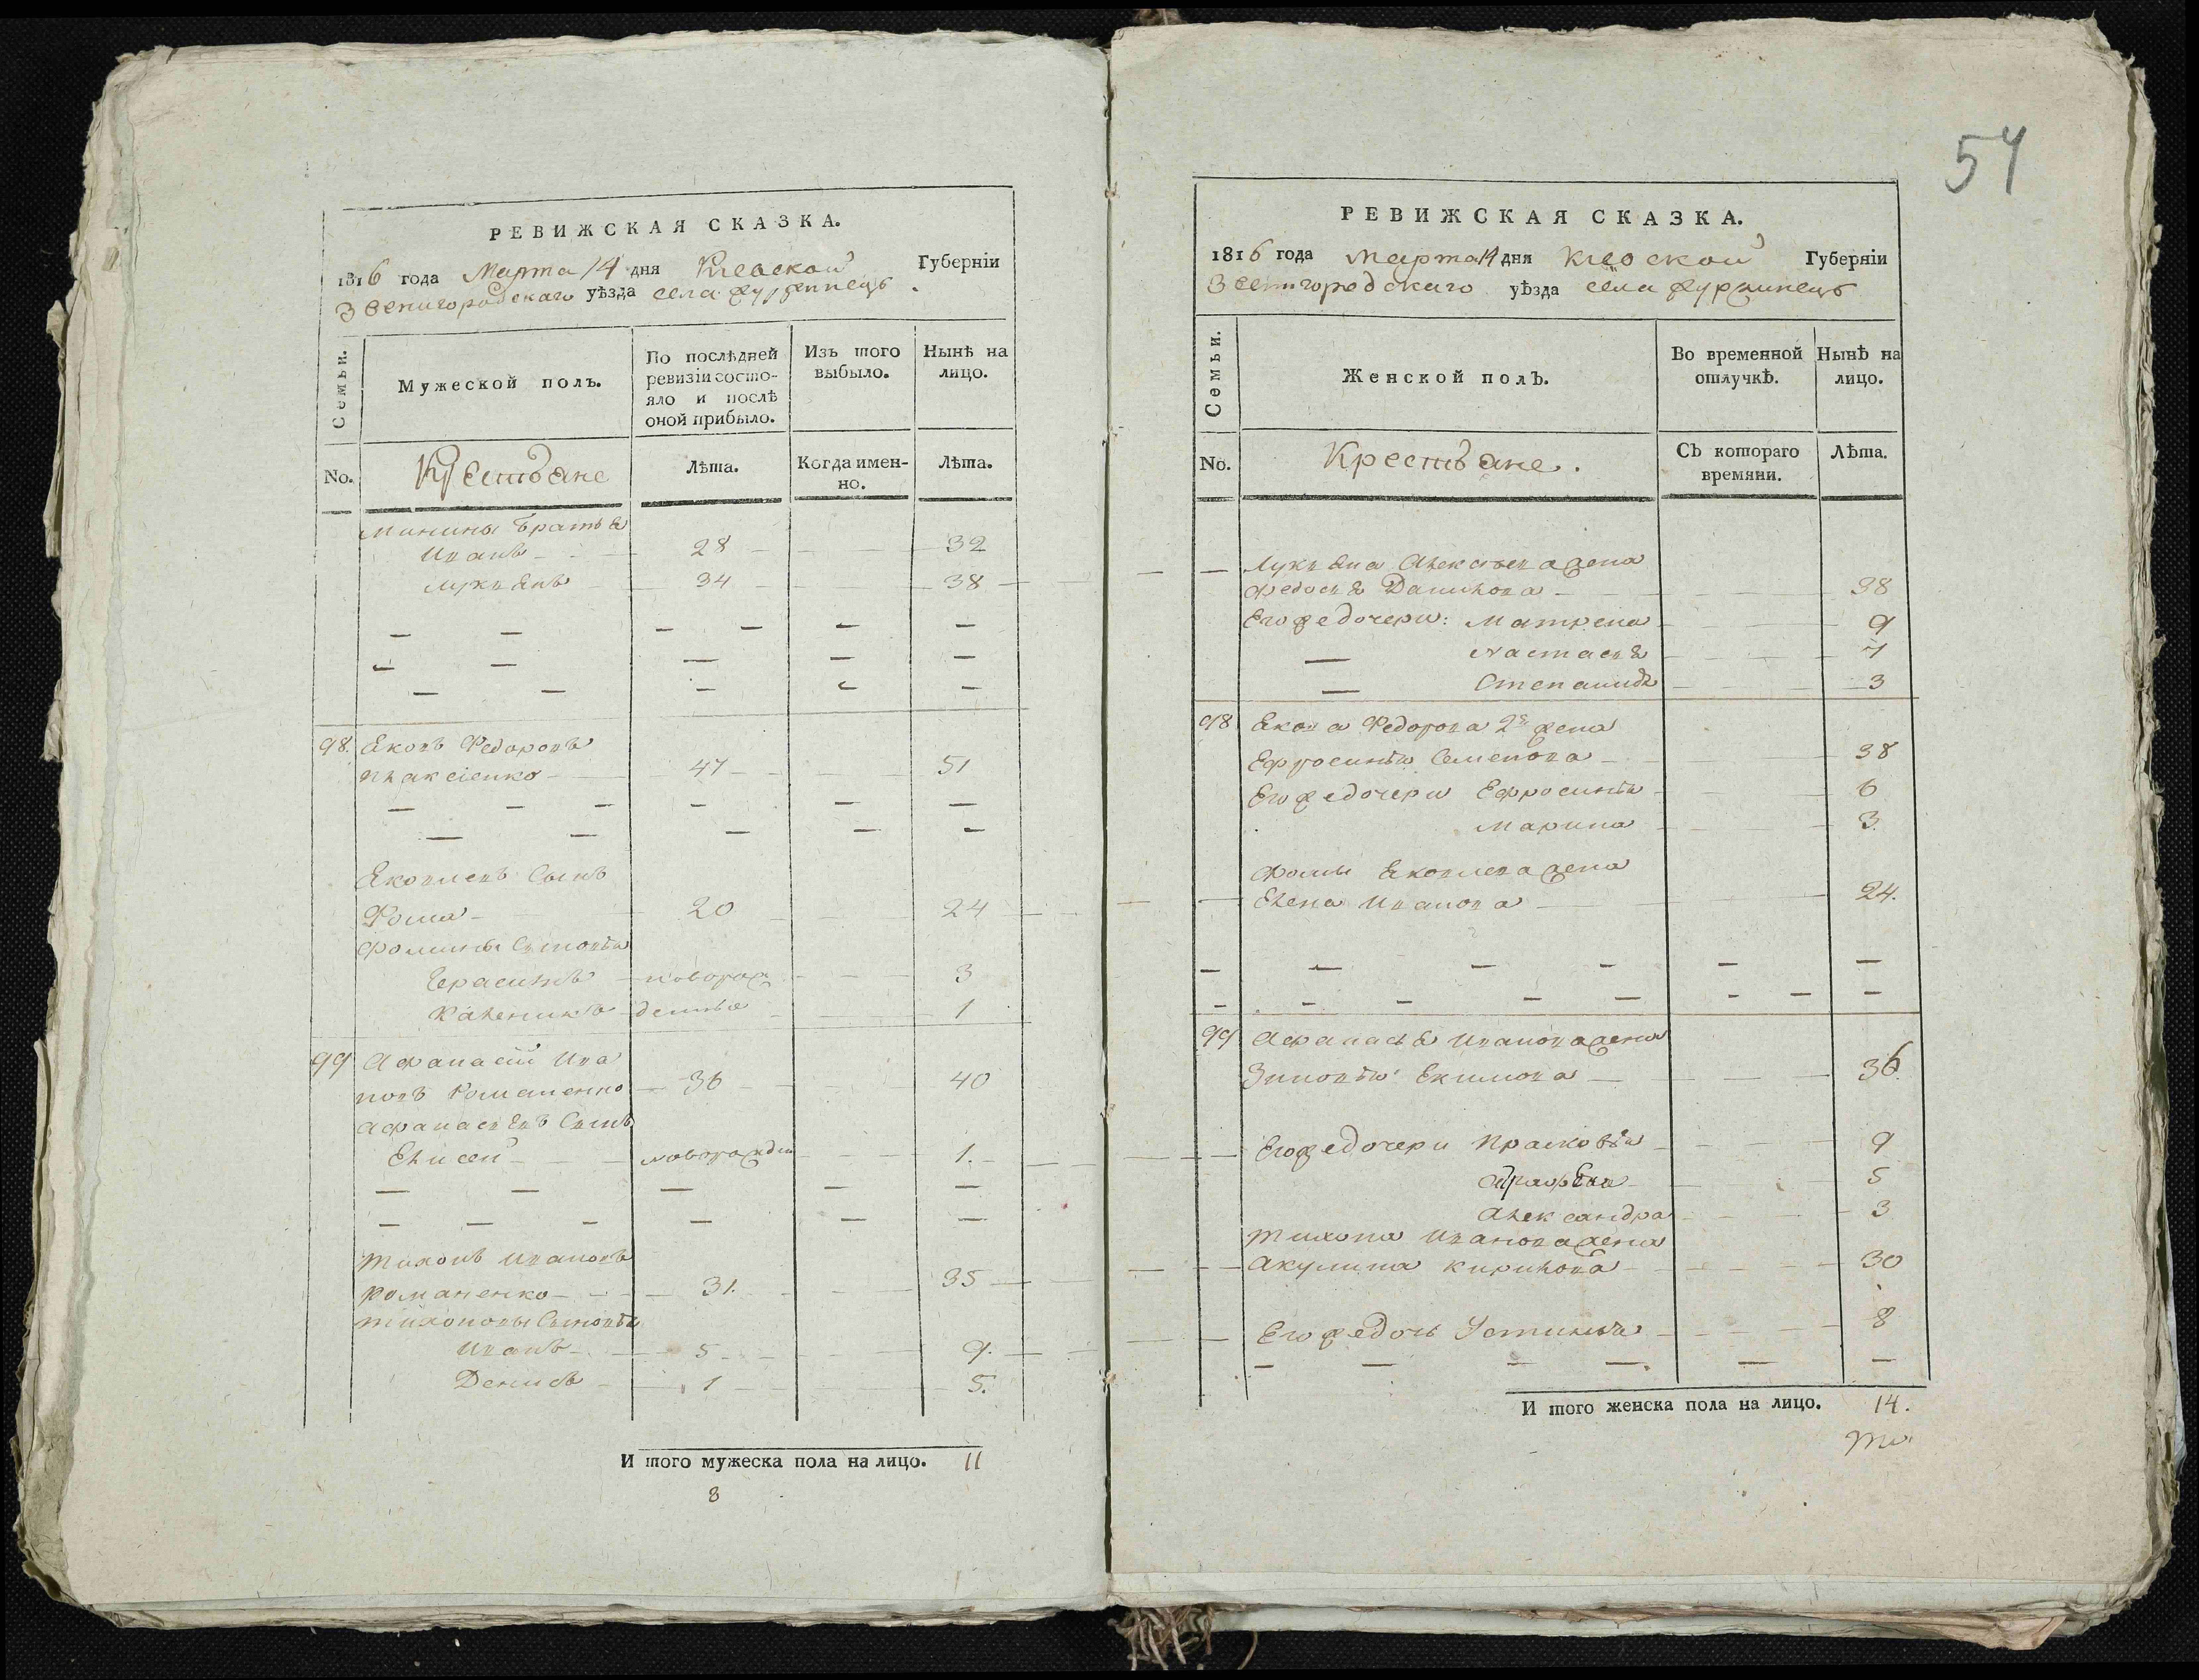 РЕВИЖСКАЯ СКАЗКА.
1816 года Марта 14 дня Кіевской Губерніи
Звенигородскаго уѣзда села Журжинецъ
Семьи.
Мужеской полъ.
По послѣдней ревизіи состояло и послѣ оной прибыло.
Изъ того выбыло.
Нынѣ на лицо.
No.
Крестьяне
Лѣта.
Когда именно.
Лѣта.
Минины братья
Иванъ 28 32
Лукьянъ 34 38
98. Яковъ Федоровъ
Плаксіенко 47 51
Яковлевъ Сынъ
Фома 20 24
Фомины Сыновья
Герасимъ новорож 3
Каленикъ денные 1
99 Афанасій Ива
новъ Романенко 36 40
Афанасьевъ Сынъ
Елисей новорожден 1.
Тихонъ Ивановъ
Романенко 31. 35
Тихоновы Сыновья
Иванъ 5 9.
Денисъ 1 5.
И того мужеска пола на лицо. 11
8
54
РЕВИЖСКАЯ СКАЗКА.
1816 года Марта 14 дня Кіевской Губерніи
Звенигородскаго уѣзда села Журжинецъ
Семьи.
Женской полъ.
Во временной отлучкѣ.
Нынѣ на лицо.
No.
Крестьяне.
Съ котораго времяни.
Лѣта.
Лукьяна Алексѣева жена
Федосья Данилова 38
Его же дочери: Матрена 9
Настасья 7
Степанида 3
98 Якова Федорова 2я жена
Ефросинья Семенова 38
Его же дочери Ефросинья 6
Марина 3.
Фомы Яковлева жена
Елена Иванова 24.
99 Афанасья Иванова жена
Зиновья Екимова 36.
Его же дочери Прасковья 9
5
Александра 3
Тихона Иванова жена
Акулина Кирилова 30
Его же дочь Устинья 8
И того женска пола на лицо. 14.